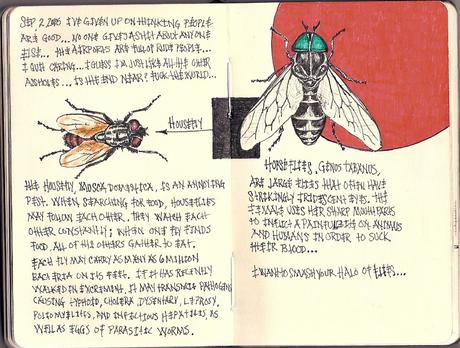 SEP 2, 2005 I'VE GIVEN UP ON THINKING PEOPLE
ARE GOOD... NO ONE GIVES A SHIT ABOUT ANYONE
ELSE... THE AIRPORTS ARE FULL OF RUDE PEOPLE...
I QUIT CARING... I GUESS I'M JUST LIKE ALL THE OTHER
ASSHOLES... IS THE END NEAR? FUCK THE WORLD...
HOUSEFLY
THE HOUSEFLY, MUSCA DOMESTICA, IS AN ANNOYING
PEST. WHEN SEARCHING FOR FOOD, HOUSEFLIES
MAY FOLLOW EACH OTHER. THEY WATCH EACH
OTHER CONSTANTLY; WHEN ONE FLY FINDS
FOOD, ALL OF THE OTHERS GATHER TO EAT.
EACH FLY MAY CARRY AS MANY AS 6 MILLION
BACTERIA ON ITS FEET. IF IT HAS RECENTLY
WALKED IN EXCREMENT, IT MAY TRANSMIT PATHOGENS
CAUSING TYPHOID, CHOLERA, DYSENTERY, LEPROSY,
POLIOMYELITIS, AND INFECTIOUS HEPATITIS, AS
WELL AS EGGS OF PARASITIC WORMS.
HORSEFLIES, GENUS TABANUS,
ARE LARGE FLIES THAT OFTEN HAVE
STRIKINGLY IRIDESCENT EYES. THE
FEMALE USES HER SHARP MOUTHPARTS
TO INFLICT A PAINFUL BITE ON ANIMALS
AND HUMANS IN ORDER TO SUCK
THEIR BLOOD...
I WANT TO SMASH YOUR HALO OF FLIES...